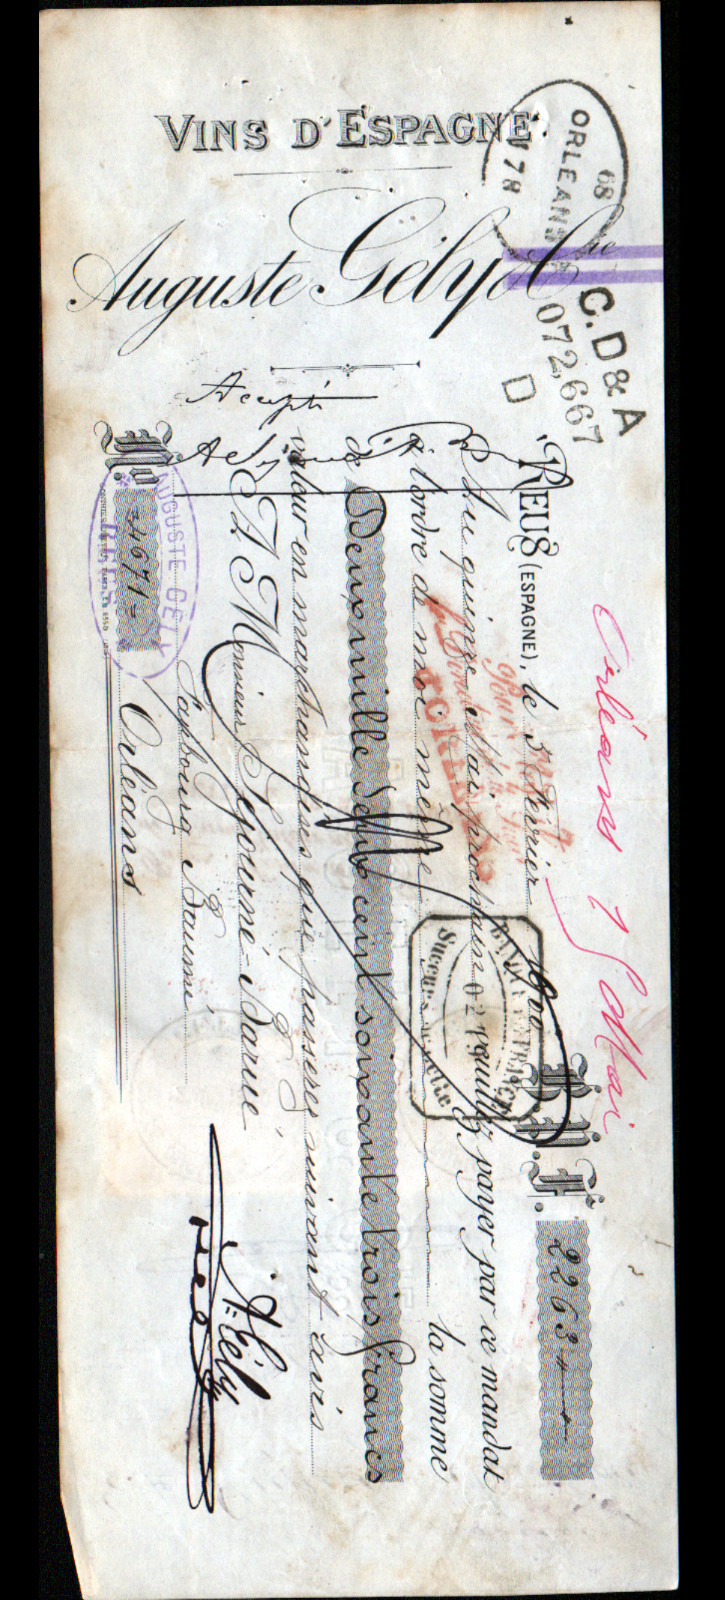 VINS D'ESPAGNE
Auguste Gély & Cie
ORLEANS
68
78
C.D & A
072,667
D
Orléans 15 Mai
REUS (ESPAGNE), le 5 Février 1900
B.P.F. 2263
Au quinze Mai prochain veuillez payer par ce mandat
à l'ordre de moi même la somme
de Deux mille deux cent soixante trois francs
valeur en marchandises que passerez suivant avis
A Monsieur Séjourné-Barué
Faubourg Bannier
Orléans
No 4671
AUGUSTE GELY
REUS
Accepté
A. Gély